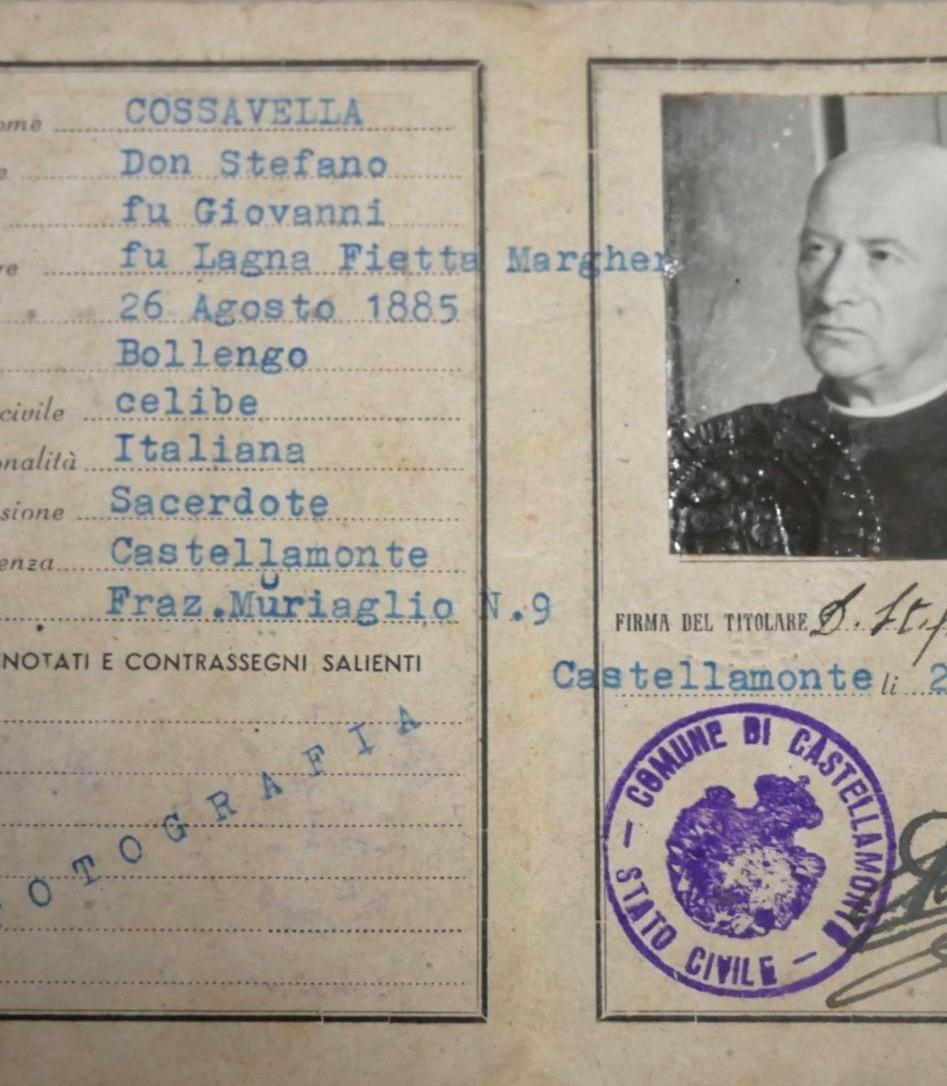 ome COSSAVELLA
e Don Stefano
fu Giovanni
re fu Lagna Fietta Margher
26 Agosto 1885
Bollengo
civile celibe
onalità Italiana
sione Sacerdote
enza Castellamonte
Fraz.Muriaglio N.9
NOTATI E CONTRASSEGNI SALIENTI
OTOGRAFIA
FIRMA DEL TITOLARE D. St
Castellamonte li 2
COMUNE DI CASTELLAMONTE
STATO CIVILE